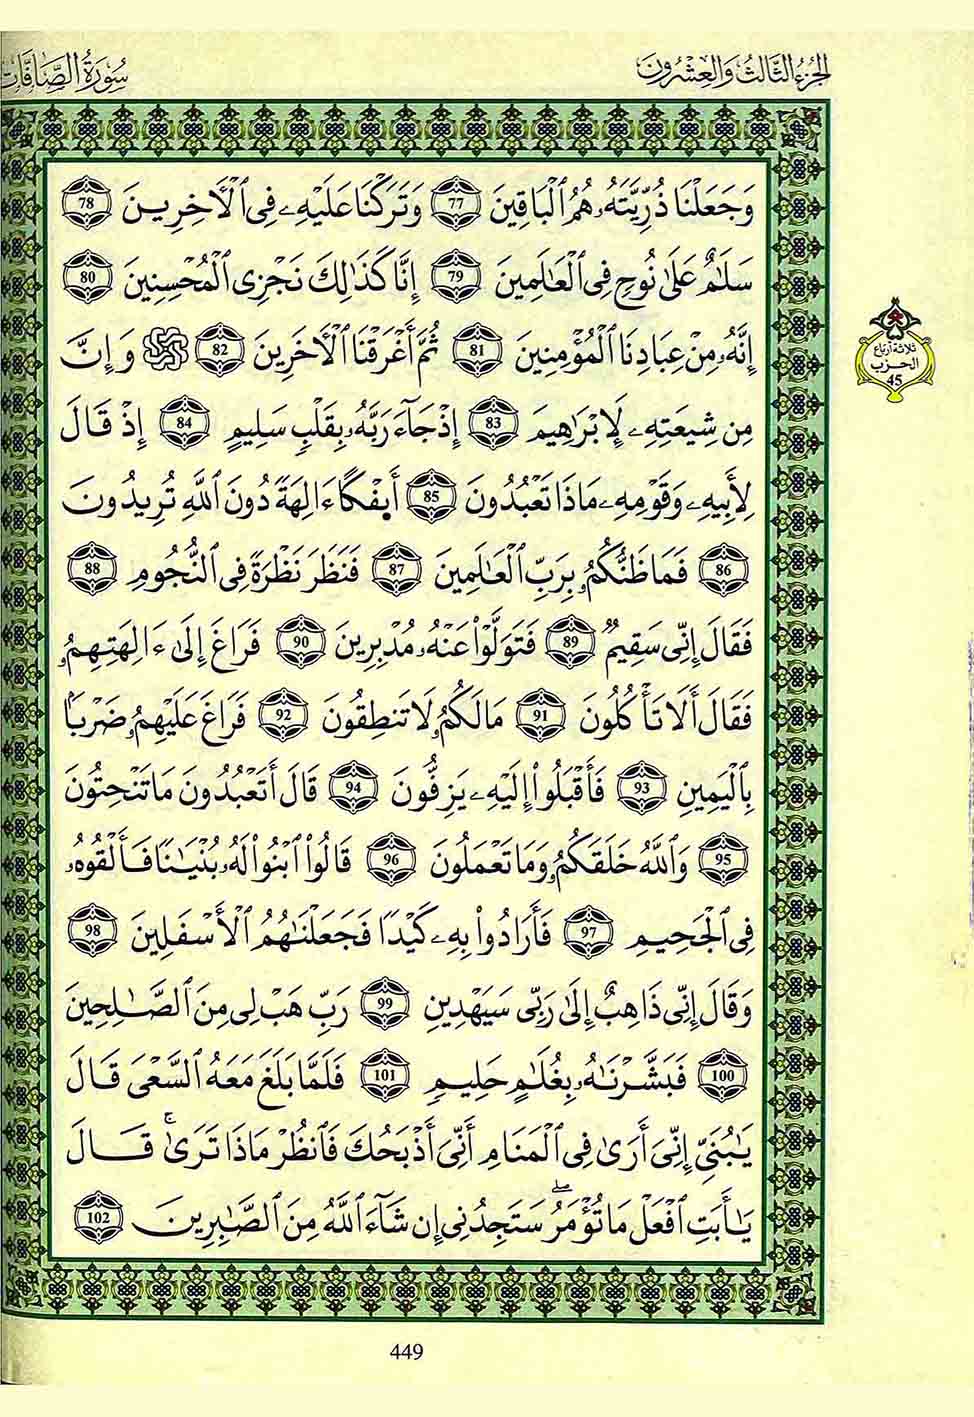 الجزء الثالث والعشرون
سورة الصافات
وَجَعَلْنَا ذُرِّيَّتَهُۥ هُمُ ٱلْبَاقِينَ 77 وَتَرَكْنَا عَلَيْهِۦ فِى ٱلْأٓخِرِينَ 78
سَلَٰمٌ عَلَىٰ نُوحٍ فِى ٱلْعَٰلَمِينَ 79 إِنَّا كَذَٰلِكَ نَجْزِى ٱلْمُحْسِنِينَ 80
إِنَّهُۥ مِنْ عِبَادِنَا ٱلْمُؤْمِنِينَ 81 ثُمَّ أَغْرَقْنَا ٱلْأٓخَرِينَ 82 وَإِنَّ
ثلاثة أرباع
الحزب
45
مِن شِيعَتِهِۦ لَإِبْرَٰهِيمَ 83 إِذْ جَآءَ رَبَّهُۥ بِقَلْبٍ سَلِيمٍ 84 إِذْ قَالَ
لِأَبِيهِۦ وَقَوْمِهِۦ مَاذَا تَعْبُدُونَ 85 أَئِفْكًا ءَالِهَةً دُونَ ٱللَّهِ تُرِيدُونَ
86 فَمَا ظَنُّكُمُۥ بِرَبِّ ٱلْعَٰلَمِينَ 87 فَنَظَرَ نَظْرَةً فِى ٱلنُّجُومِ 88
فَقَالَ إِنِّى سَقِيمٌ 89 فَتَوَلَّوْا۟ عَنْهُۥ مُدْبِرِينَ 90 فَرَاغَ إِلَىٰ ءَالِهَتِهِمُۥ
فَقَالَ أَلَا تَأْكُلُونَ 91 مَا لَكُمُۥ لَا تَنطِقُونَ 92 فَرَاغَ عَلَيْهِمُۥ ضَرْبًۢا
بِٱلْيَمِينِ 93 فَأَقْبَلُوٓا۟ إِلَيْهِۦ يَزِفُّونَ 94 قَالَ أَتَعْبُدُونَ مَا تَنْحِتُونَ
95 وَٱللَّهُ خَلَقَكُمُۥ وَمَا تَعْمَلُونَ 96 قَالُوا۟ ٱبْنُوا۟ لَهُۥ بُنْيَٰنًا فَأَلْقُوهُۥ
فِى ٱلْجَحِيمِ 97 فَأَرَادُوا۟ بِهِۦ كَيْدًا فَجَعَلْنَٰهُمُ ٱلْأَسْفَلِينَ 98
وَقَالَ إِنِّى ذَاهِبٌ إِلَىٰ رَبِّى سَيَهْدِينِ 99 رَبِّ هَبْ لِى مِنَ ٱلصَّٰلِحِينَ
100 فَبَشَّرْنَٰهُۥ بِغُلَٰمٍ حَلِيمٍ 101 فَلَمَّا بَلَغَ مَعَهُ ٱلسَّعْىَ قَالَ
يَٰبُنَىِّ إِنِّىَ أَرَىٰ فِى ٱلْمَنَامِ أَنِّىَ أَذْبَحُكَ فَٱنظُرْ مَاذَا تَرَىٰ ۚ قَالَ
يَٰأَبَتِ ٱفْعَلْ مَا تُؤْمَرُ ۖ سَتَجِدُنِى إِن شَآءَ ٱللَّهُ مِنَ ٱلصَّٰبِرِينَ 102
449